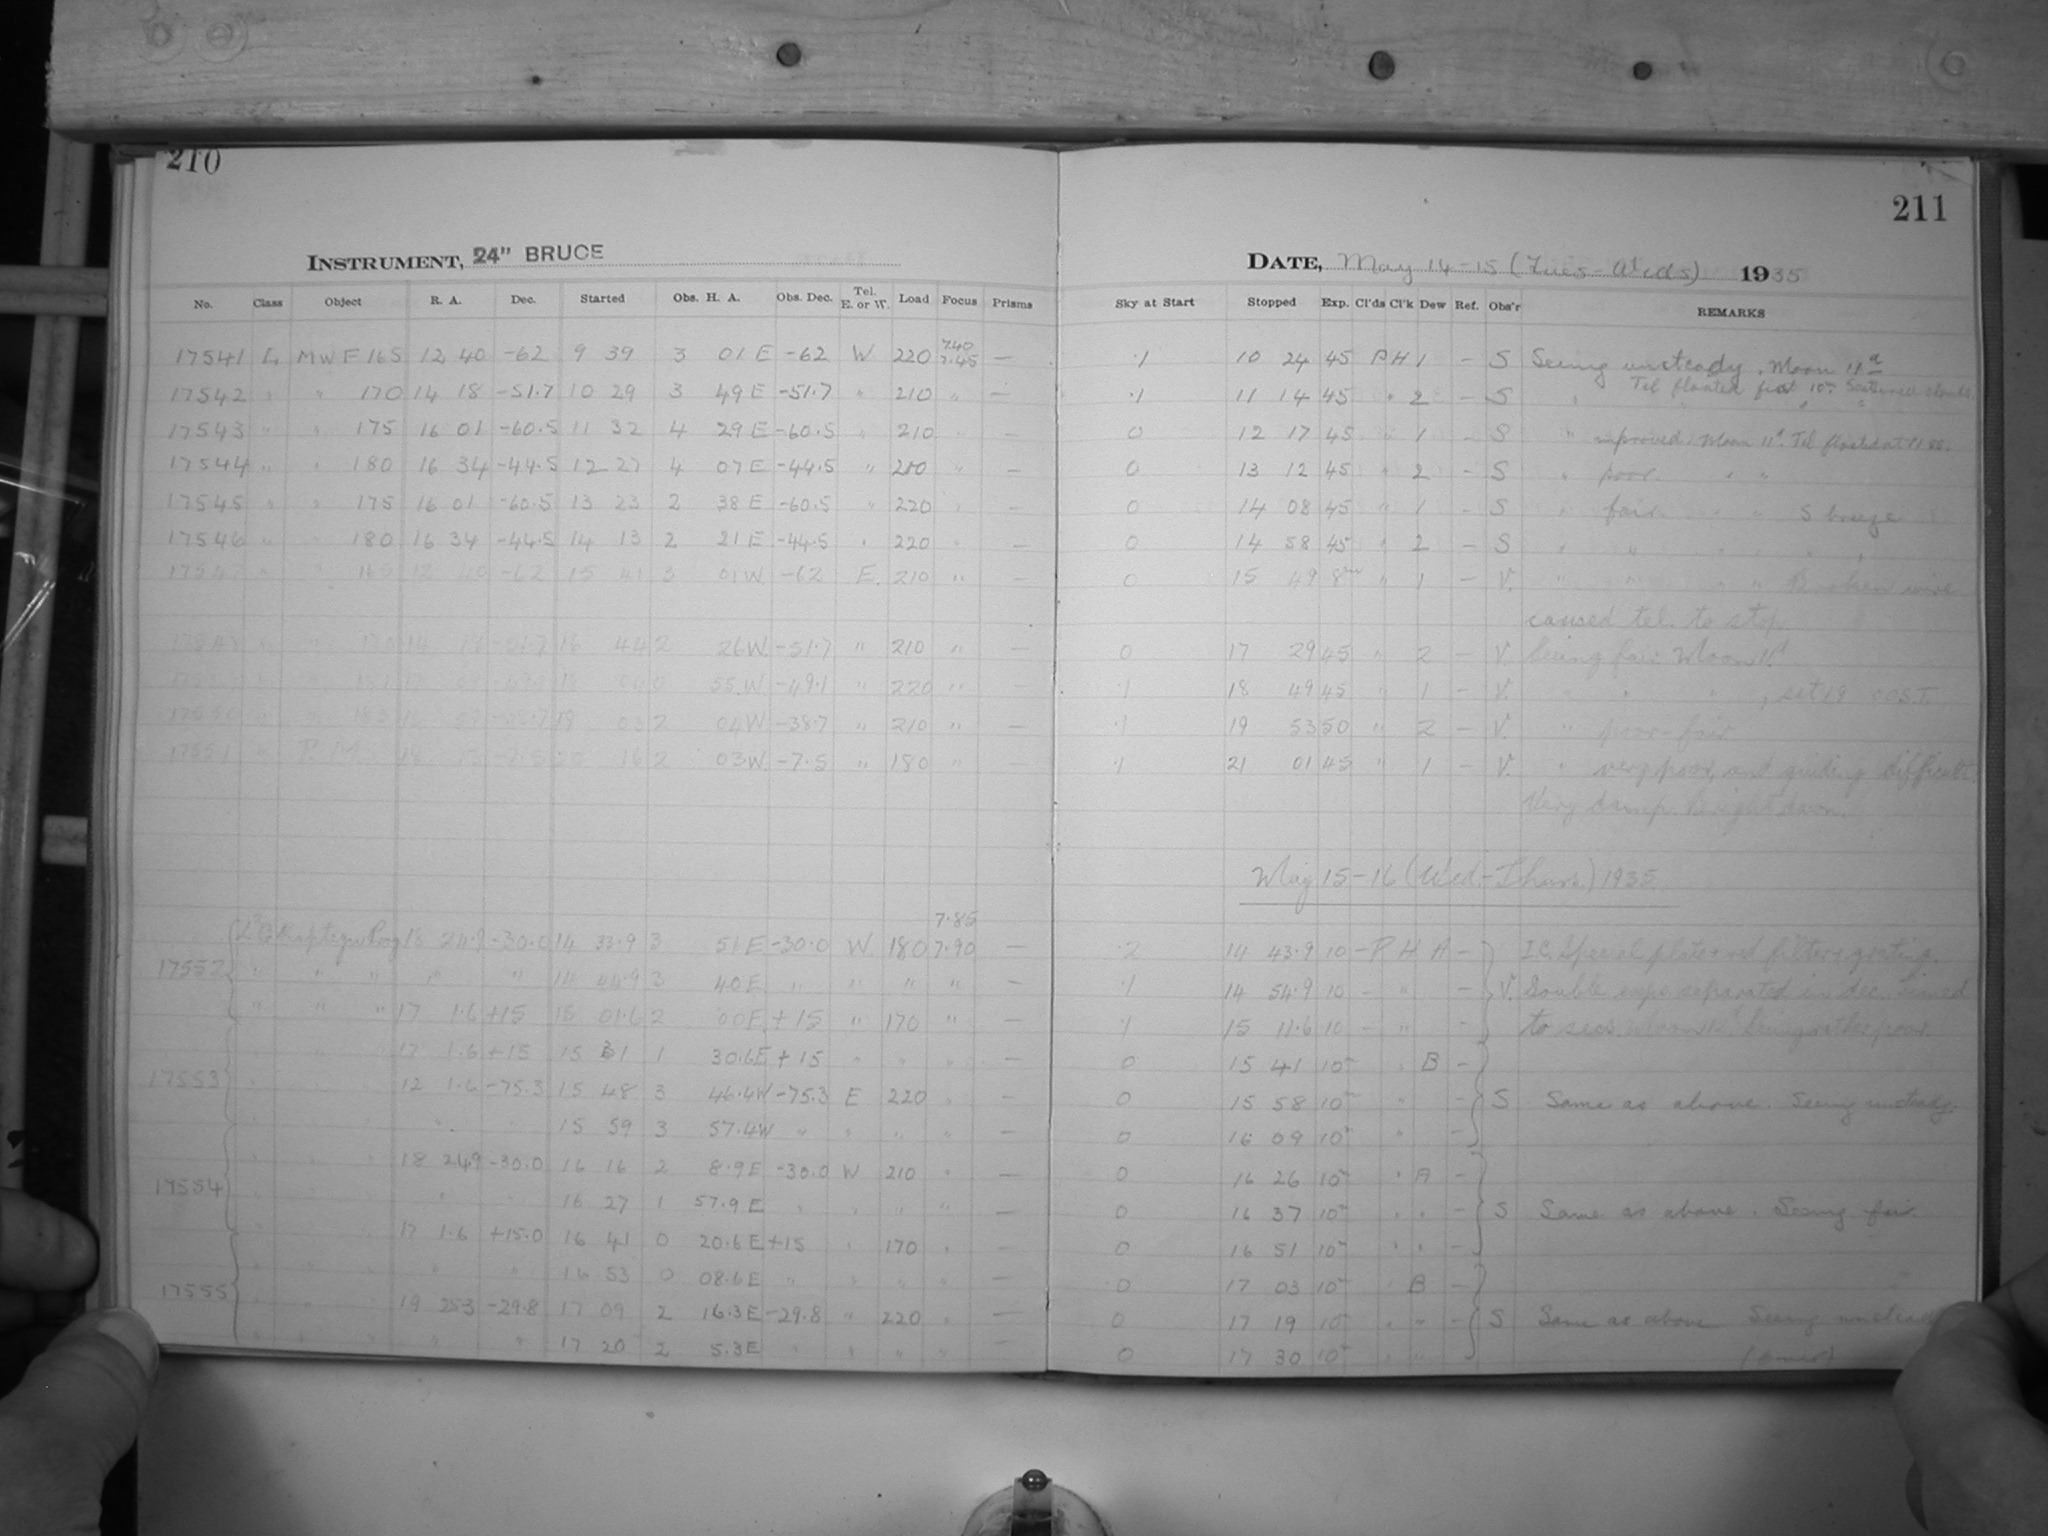 210
INSTRUMENT, 24" BRUCE
No. Class Object R. A. Dec. Started Obs. H. A. Obs. Dec. Tel. E. or W. Load Focus Prisms
17541 L MWF 165 12 40 -62 9 39 3 01 E -62 W 220 7.40 7.45 —
17542 " " 170 14 18 -51.7 10 29 3 49 E -51.7 " 210 " —
17543 " " 175 16 01 -60.5 11 32 4 29 E -60.5 " 210 " —
17544 " " 180 16 34 -44.5 12 27 4 07 E -44.5 " 210 " —
17545 " " 175 16 01 -60.5 13 23 2 38 E -60.5 " 220 " —
17546 " " 180 16 34 -44.5 14 13 2 21 E -44.5 " 220 " —
17547 " " 165 12 40 -62 15 41 3 01 W -62 E. 210 " —
" " 14 18 -51.7 16 44 2 26 W -51.7 " 210 " —
55 W -49.1 " 220 " —
17550 " " 19 03 2 04 W -38.7 " 210 " —
17551 " 18 -7.5 20 16 2 03 W -7.5 " 180 " —
7.85
18 24.9 -30.0 14 33.9 3 51 E -30.0 W. 180 7.90 —
17552 " " " " " 14 44.9 3 40 E " " " " —
" " " 17 1.6 +15 15 01.6 2 00 E +15 " 170 " —
17 1.6 +15 15 31 1 30.6E +15 " " " —
17553 12 1.6 -75.3 15 48 3 46.4W -75.3 E 220 " —
" " 15 59 3 57.4W " " " " —
18 24.9 -30.0 16 16 2 8.9E -30.0 W 210 " —
17554 " " 16 27 1 57.9 E " " " " —
17 1.6 +15.0 16 41 0 20.6 E +15 " 170 " —
" " 16 53 0 08.6E " " " " —
17555 19 25.3 -29.8 17 09 2 16.3E -29.8 " 220 " —
" " 17 20 2 5.3E " " " " —
211
DATE, May 14-15 (Tues-Weds) 1935
Sky at Start Stopped Exp. Cl'ds Cl'k Dew Ref. Obs'r REMARKS
.1 10 24 45 PH 1 - S Seeing unsteady. Moon 11d
.1 11 14 45 " 2 - S " Tel floated first 10m Scattered clouds
0 12 17 45 " 1 - S " improved. Moon 11d. Tel floated at
0 13 12 45 " 2 - S " poor " "
0 14 08 45 " 1 - S " fair " " S breeze
0 14 58 45 " 2 - S " " " " " "
0 15 49 8m " 1 - V. " " " " Broken wire
caused tel. to stop
0 17 29 45 " 2 - V. Seeing fair Moon 11d
.1 18 49 45 " 1 - V. " " " , set 18
.1 19 53 50 " 2 - V. " poor-fair
.1 21 01 45 " 1 - V. " very poor, and guiding difficult
Very damp. Bright dawn.
May 15-16 (Wed.-Thurs.) 1935
.2 14 43.9 10 - P H A - Special plate red filter + grating.
.1 14 54.9 10 - " - V. Double exps separated in dec. timed
.1 15 11.6 10 - " - to secs. Moon Seeing rather poor.
0 15 41 10m " B -
0 15 58 10m " - S Same as above. Seeing unsteady.
0 16 09 10m " -
0 16 26 10m " A -
0 16 37 10m " " - S Same as above. Seeing fair.
0 16 51 10m " " -
0 17 03 10m " B -
0 17 19 10m " " - S Same as above Seeing unsteady
0 17 30 10m " "